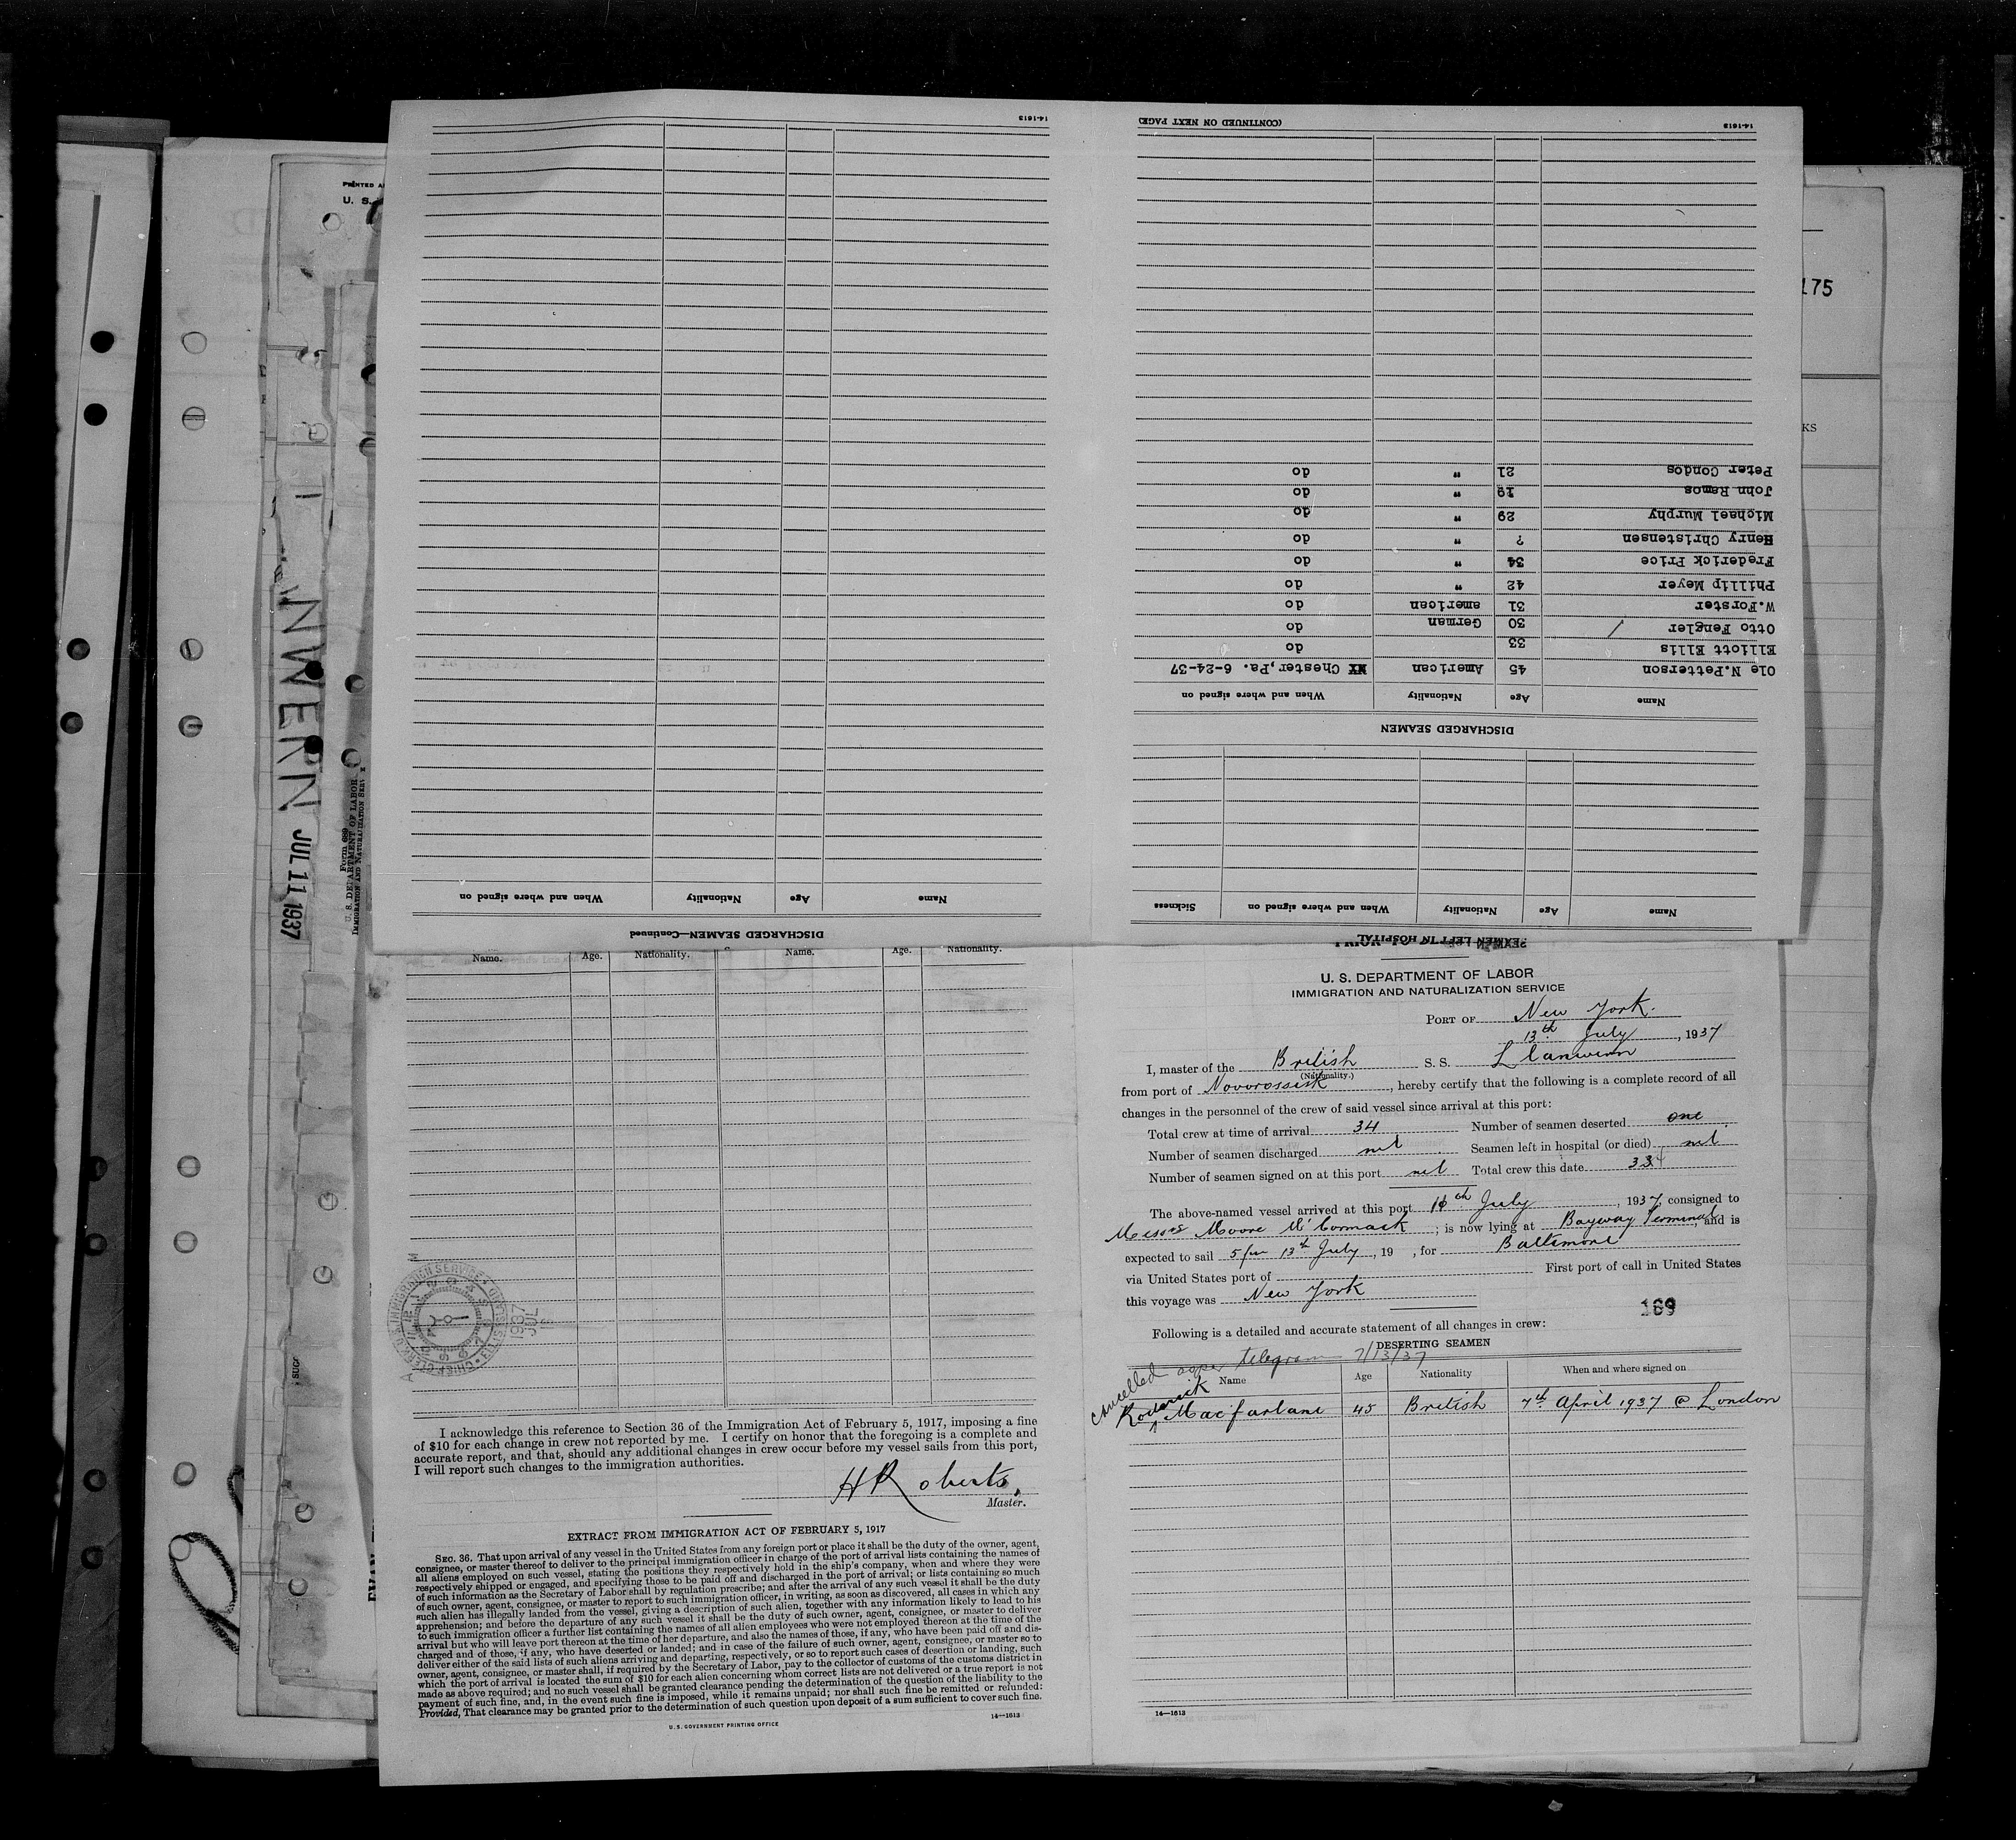 14-1613
(CONTINUED ON NEXT PAGE)
14-1613
Peter Condos 21 " do
John Ramos 19 " do
Michael Murphy 29 " do
Henry Christensen ? " do
Frederick Price 34 " do
Phillip Meyer 42 " do
W.Forster 31 american do
Otto Fengler 30 German do
Elliott Ellis 33 do
Ole N.Petterson 45 American Chester,Pa. 6-24-37
Name Age Nationality When and where signed on
DISCHARGED SEAMEN
Name Age Nationality When and where signed on Sickness
SEAMEN LEFT IN HOSPITAL
Name Age Nationality When and where signed on
DISCHARGED SEAMEN—Continued
175
KS
PRINTED
U. S.
NWERN JUL 11 1937
Form 689
U. S. DEPARTMENT OF LABOR
IMMIGRATION AND NATURALIZATION
Name. Age. Nationality. Name. Age. Nationality.
CLERK U.S. IMMIGRATION SERVICE
CHIEF
1937
JUL
I acknowledge this reference to Section 36 of the Immigration Act of February 5, 1917, imposing a fine
of $10 for each change in crew not reported by me. I certify on honor that the foregoing is a complete and
accurate report, and that, should any additional changes in crew occur before my vessel sails from this port,
I will report such changes to the immigration authorities.
H Roberts,
Master.
EXTRACT FROM IMMIGRATION ACT OF FEBRUARY 5, 1917
SEC. 36. That upon arrival of any vessel in the United States from any foreign port or place it shall be the duty of the owner, agent,
consignee, or master thereof to deliver to the principal immigration officer in charge of the port of arrival lists containing the names of
all aliens employed on such vessel, stating the positions they respectively hold in the ship's company, when and where they were
respectively shipped or engaged, and specifying those to be paid off and discharged in the port of arrival; or lists containing so much
of such information as the Secretary of Labor shall by regulation prescribe; and after the arrival of any such vessel it shall be the duty
of such owner, agent, consignee, or master to report to such immigration officer, in writing, as soon as discovered, all cases in which any
such alien has illegally landed from the vessel, giving a description of such alien, together with any information likely to lead to his
apprehension; and before the departure of any such vessel it shall be the duty of such owner, agent, consignee, or master to deliver
to such immigration officer a further list containing the names of all alien employees who were not employed thereon at the time of the
arrival but who will leave port thereon at the time of her departure, and also the names of those, if any, who have been paid off and dis-
charged and of those, if any, who have deserted or landed; and in case of the failure of such owner, agent, consignee, or master so to
deliver either of the said lists of such aliens arriving and departing, respectively, or so to report such cases of desertion or landing, such
owner, agent, consignee, or master shall, if required by the Secretary of Labor, pay to the collector of customs of the customs district in
which the port of arrival is located the sum of $10 for each alien concerning whom correct lists are not delivered or a true report is not
made as above required; and no such vessel shall be granted clearance pending the determination of the question of the liability to the
payment of such fine, and, in the event such fine is imposed, while it remains unpaid; nor shall such fine be remitted or refunded:
Provided, That clearance may be granted prior to the determination of such question upon deposit of a sum sufficient to cover such fine.
U. S. GOVERNMENT PRINTING OFFICE 14—1613
U. S. DEPARTMENT OF LABOR
IMMIGRATION AND NATURALIZATION SERVICE
PORT OF New York.
13th July, 1937
I, master of the British S. S. Llanwern
(Nationality.)
from port of Novorossisk, hereby certify that the following is a complete record of all
changes in the personnel of the crew of said vessel since arrival at this port:
Total crew at time of arrival 34 Number of seamen deserted one
Number of seamen discharged nil Seamen left in hospital (or died) nil
Number of seamen signed on at this port nil Total crew this date 33
The above-named vessel arrived at this port th July, 1937, consigned to
Messrs Moore McCormack; is now lying at Bayway Terminal, and is
expected to sail 5 pm 13th July, 19 , for Baltimore
via United States port of First port of call in United States
this voyage was New York
189
Following is a detailed and accurate statement of all changes in crew:
DESERTING SEAMEN
Cancelled as per telegram 7/13/37
Name Age Nationality When and where signed on
Roderick Macfarlane 45 British 7th April 1937 @ London
14—1613